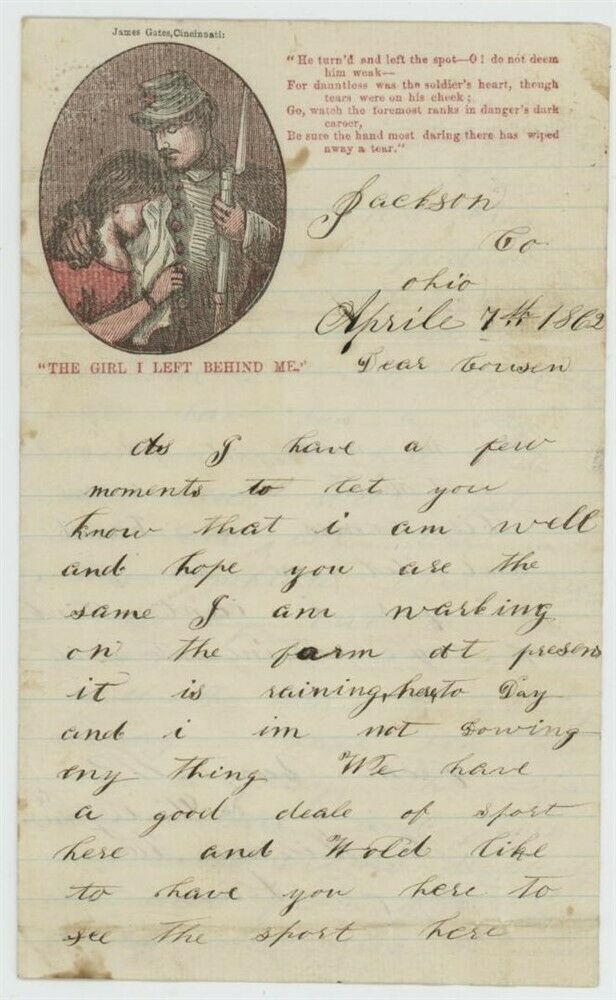 James Gates, Cincinnati:
"He turn'd and left the spot—O! do not deem
him weak—
For dauntless was the soldier's heart, though
tears were on his cheek;
Go, watch the foremost ranks in danger's dark
career,
Be sure the hand most daring there has wiped
away a tear."
Jackson
Co
ohio
Aprile 7th 1862
"THE GIRL I LEFT BEHIND ME."
Dear Cousen
As I have a few
moments to let you
know that i am well
and hope you are the
same I am warking
on the farm at present
it is raining here to Day
and i im not Dowing
eny thing We have
a good deale of sport
here and Wold like
to have you here to
see the sport here